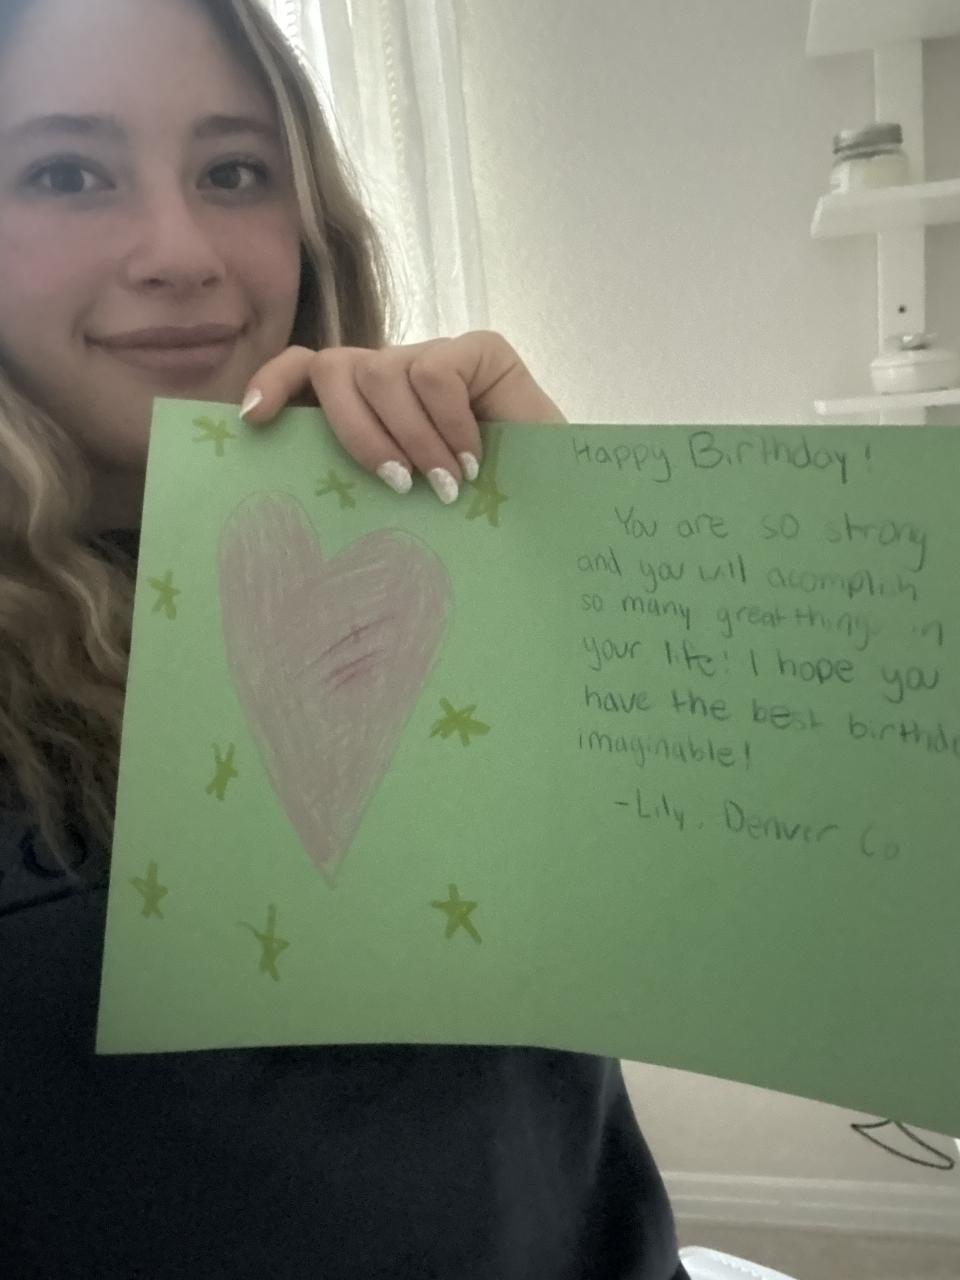 Happy Birthday!
You are so strong
and you will acomplish
so many great things in
your life! I hope you
have the best
imaginable!
-Lily, Denver Co